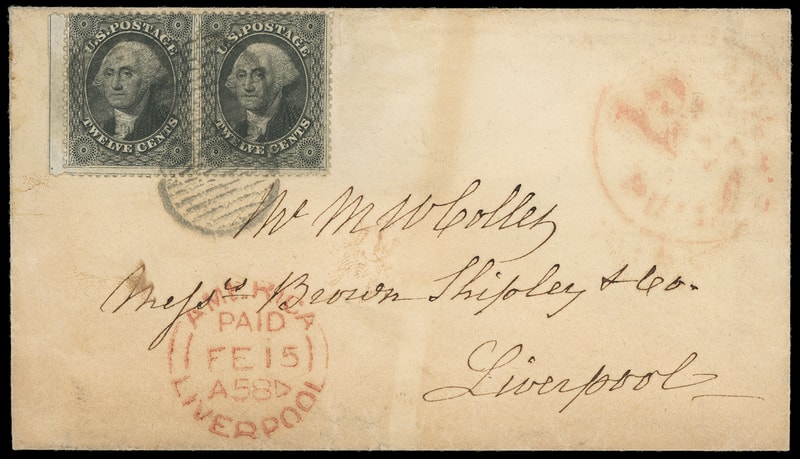 U.S. POSTAGE
TWELVE CENTS
U.S. POSTAGE
TWELVE CENTS
Mr M W Collet
Mess.rs Brown Shipley & Co.
Liverpool
AMERICA
PAID
FE 15
A58
LIVERPOOL